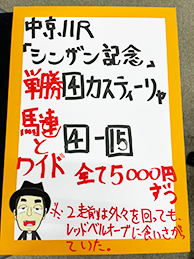 中京11R
「シンザン記念」
単勝④カスティーリャ
馬連
と
ワイド
④-⑮
全て5000円
ずつ
※2走前は外々を回っても、
レッドベルオーブに食いさがっ
ていた。